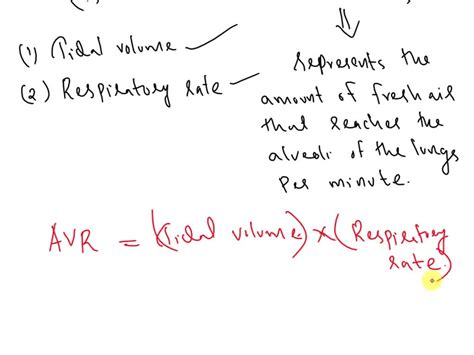 (1) Tidal volume
(2) Respiratory rate
represents the
amount of fresh air
that reaches the
alveoli of the lungs
per minute.
AVR = (Tidal volume) × (Respiratory
rate)